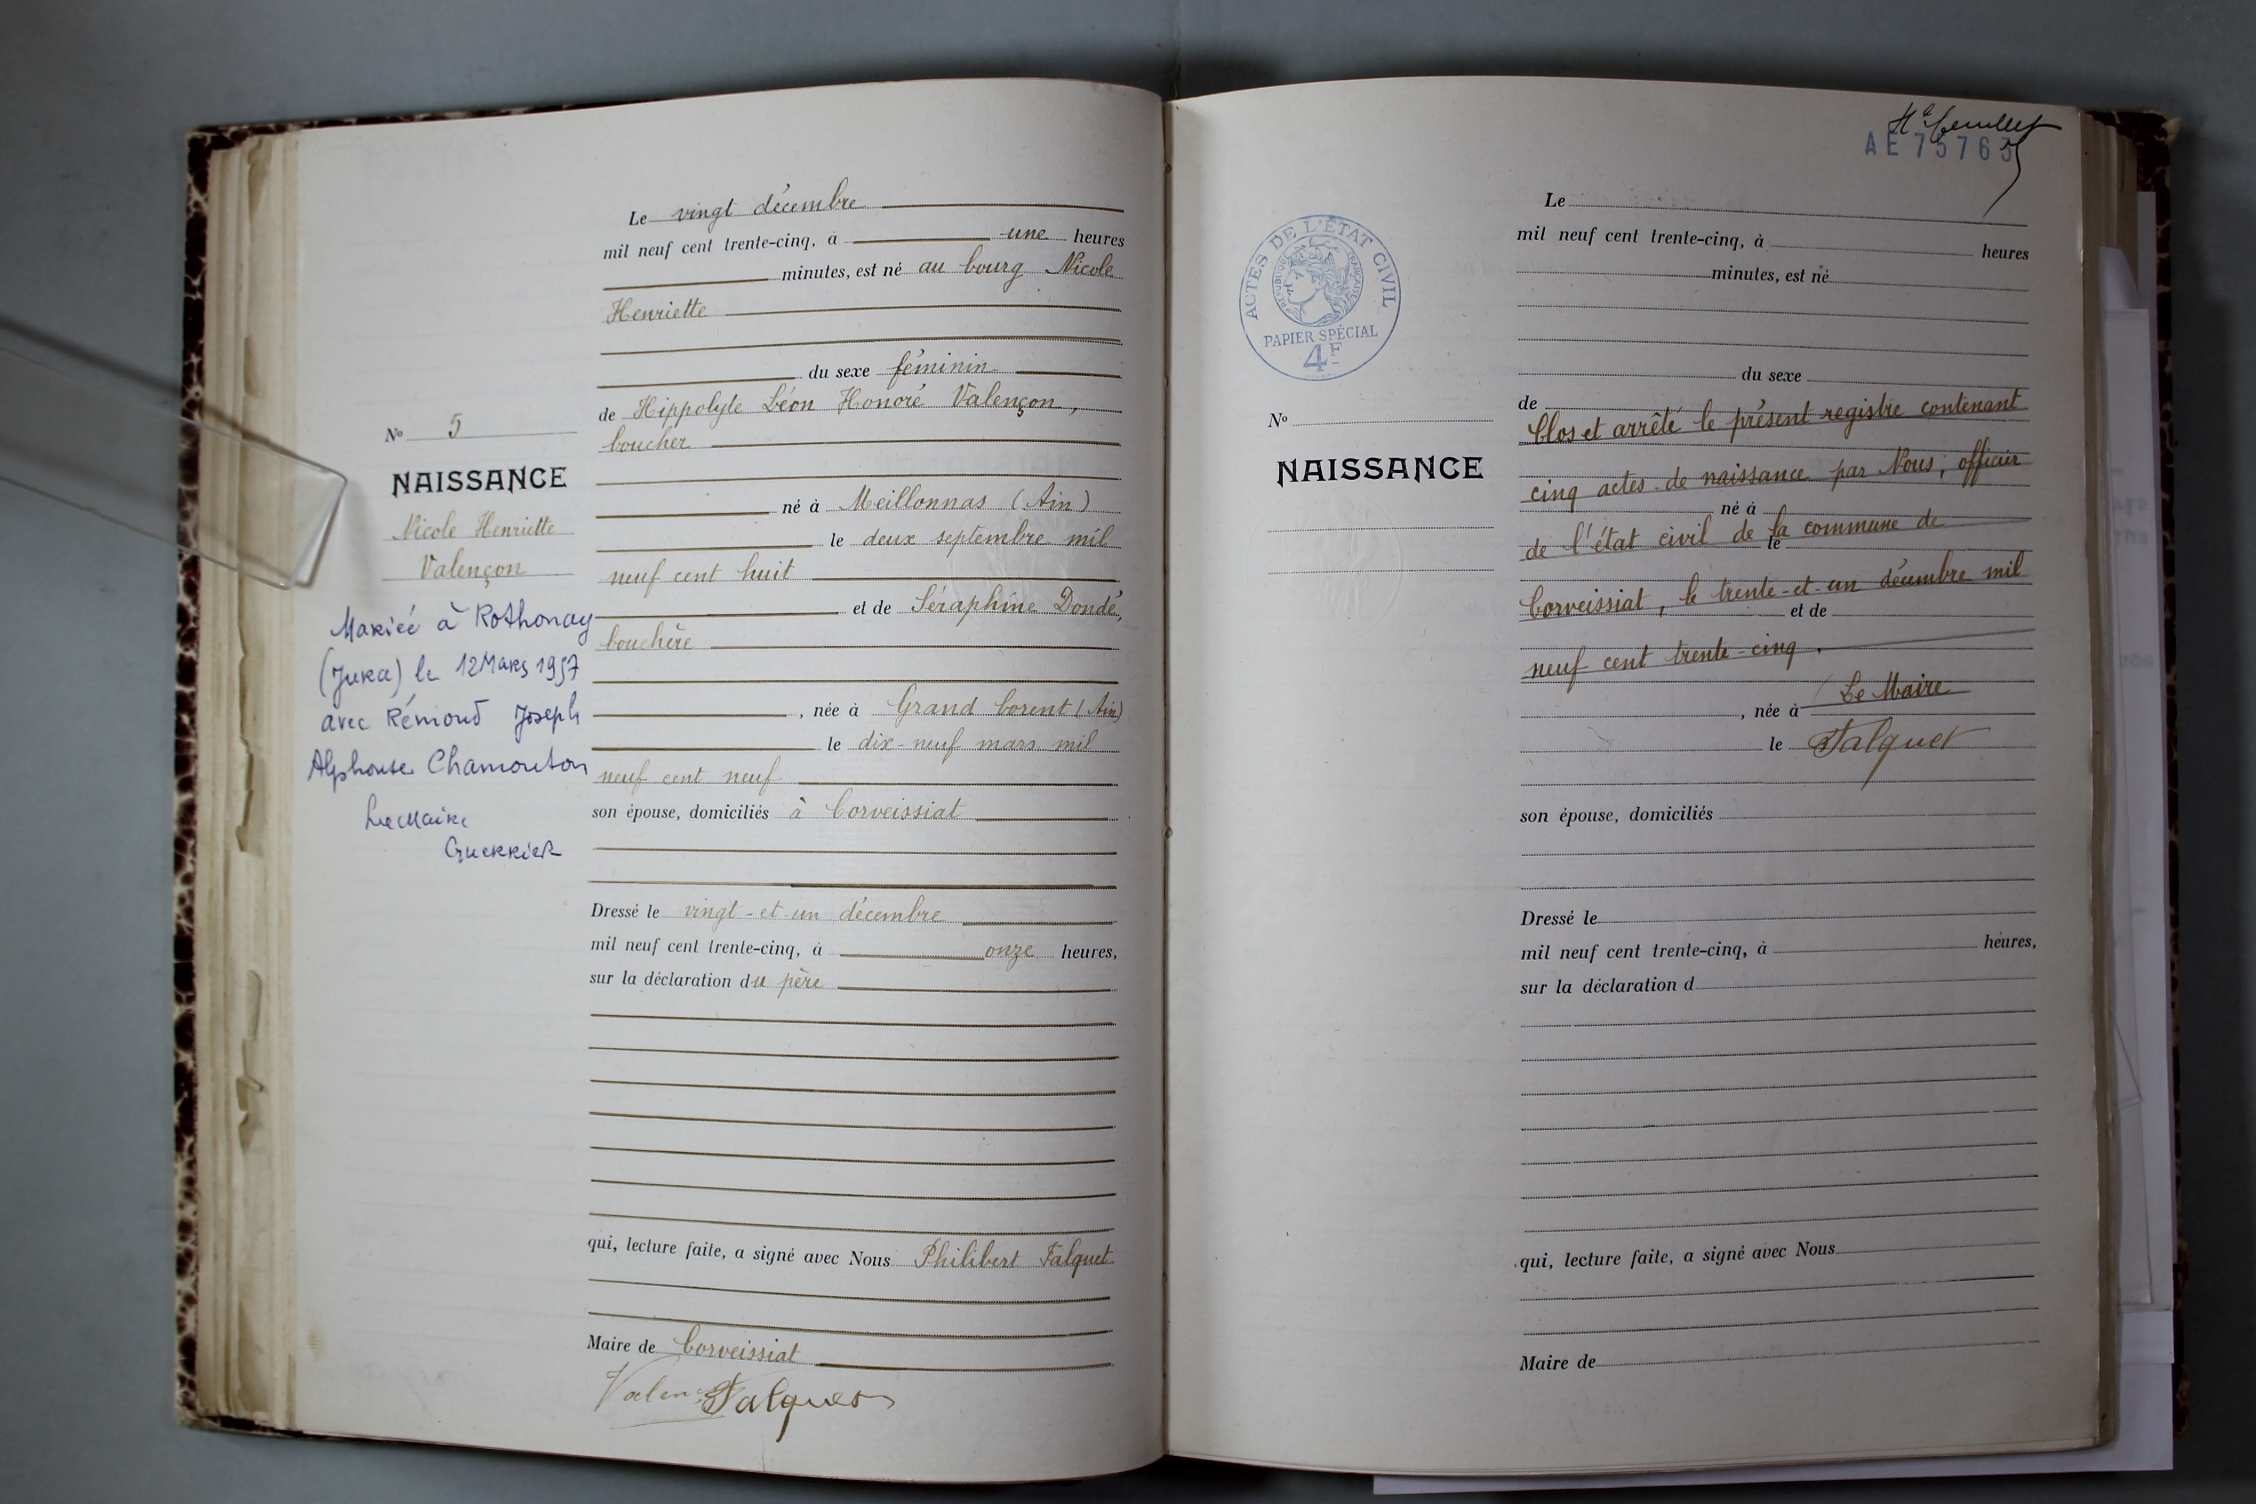 Le vingt décembre
mil neuf cent trente-cinq, à une heures
minutes, est né au bourg Nicole
Henriette
du sexe féminin
de Hippolyte Léon Honoré Valençon,
boucher
né à Meillonnas (Ain)
le deux septembre mil
neuf cent huit
et de Séraphine Dondé,
bouchère
, née à Grand Corent (Ain)
le dix-neuf mars mil
neuf cent neuf
son épouse, domiciliés à Corveissiat
Dressé le vingt-et-un décembre
mil neuf cent trente-cinq, à onze heures,
sur la déclaration du père
qui, lecture faite, a signé avec Nous Philibert Falquet
Maire de Corveissiat
Falquet
No 5
NAISSANCE
Nicole Henriette
Valençon
Mariée à Rothonay
(Jura) le 12 Mars 1957
avec Rémond Joseph
Alphonse Chamouton
Le Maire
Guerrier
AE 75763
ACTES DE L'ÉTAT CIVIL
RÉPUBLIQUE FRANÇAISE
PAPIER SPÉCIAL
4F
No
NAISSANCE
Le
mil neuf cent trente-cinq, à heures
minutes, est né
du sexe
de
Clos et arrêté le présent registre contenant
cinq actes de naissance par Nous, officier
né à
de l'état civil de la commune de
le
Corveissiat, le trente-et-un décembre mil
et de
neuf cent trente-cinq.
Le Maire
, née à
le Falquet
son épouse, domiciliés
Dressé le
mil neuf cent trente-cinq, à heures,
sur la déclaration d
qui, lecture faite, a signé avec Nous
Maire de